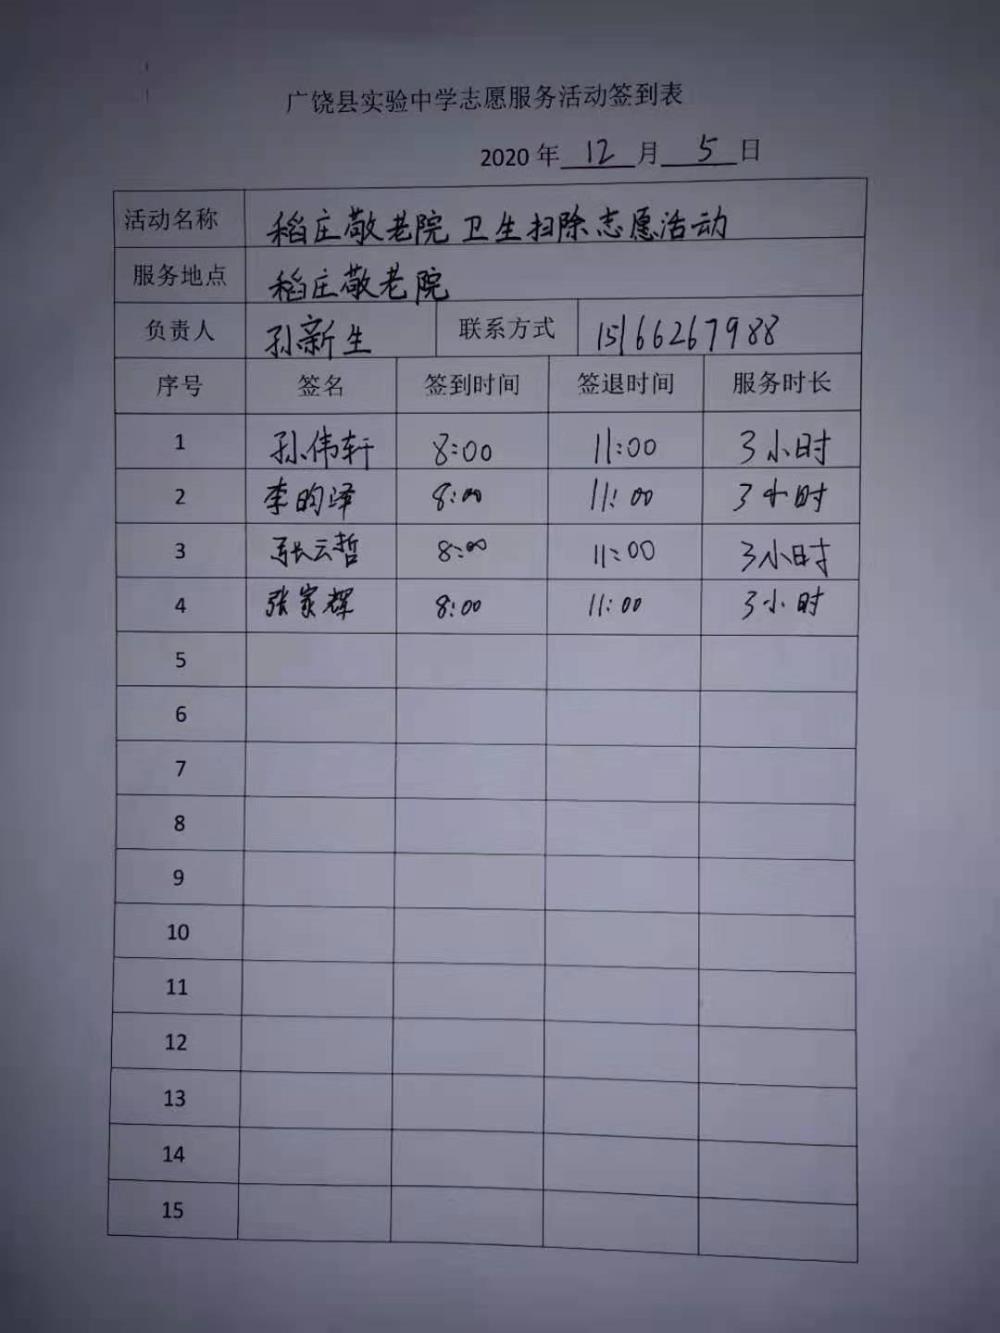 广饶县实验中学志愿服务活动签到表
2020 年 12 月 5 日
活动名称 稻庄敬老院卫生扫除志愿活动
服务地点 稻庄敬老院
负责人 孙新生 联系方式 15166267988
序号 签名 签到时间 签退时间 服务时长
1 孙伟轩 8:00 11:00 3小时
2 李昀泽 8:00 11:00 3小时
3 张云哲 8:00 11:00 3小时
4 张家辉 8:00 11:00 3小时
5
6
7
8
9
10
11
12
13
14
15